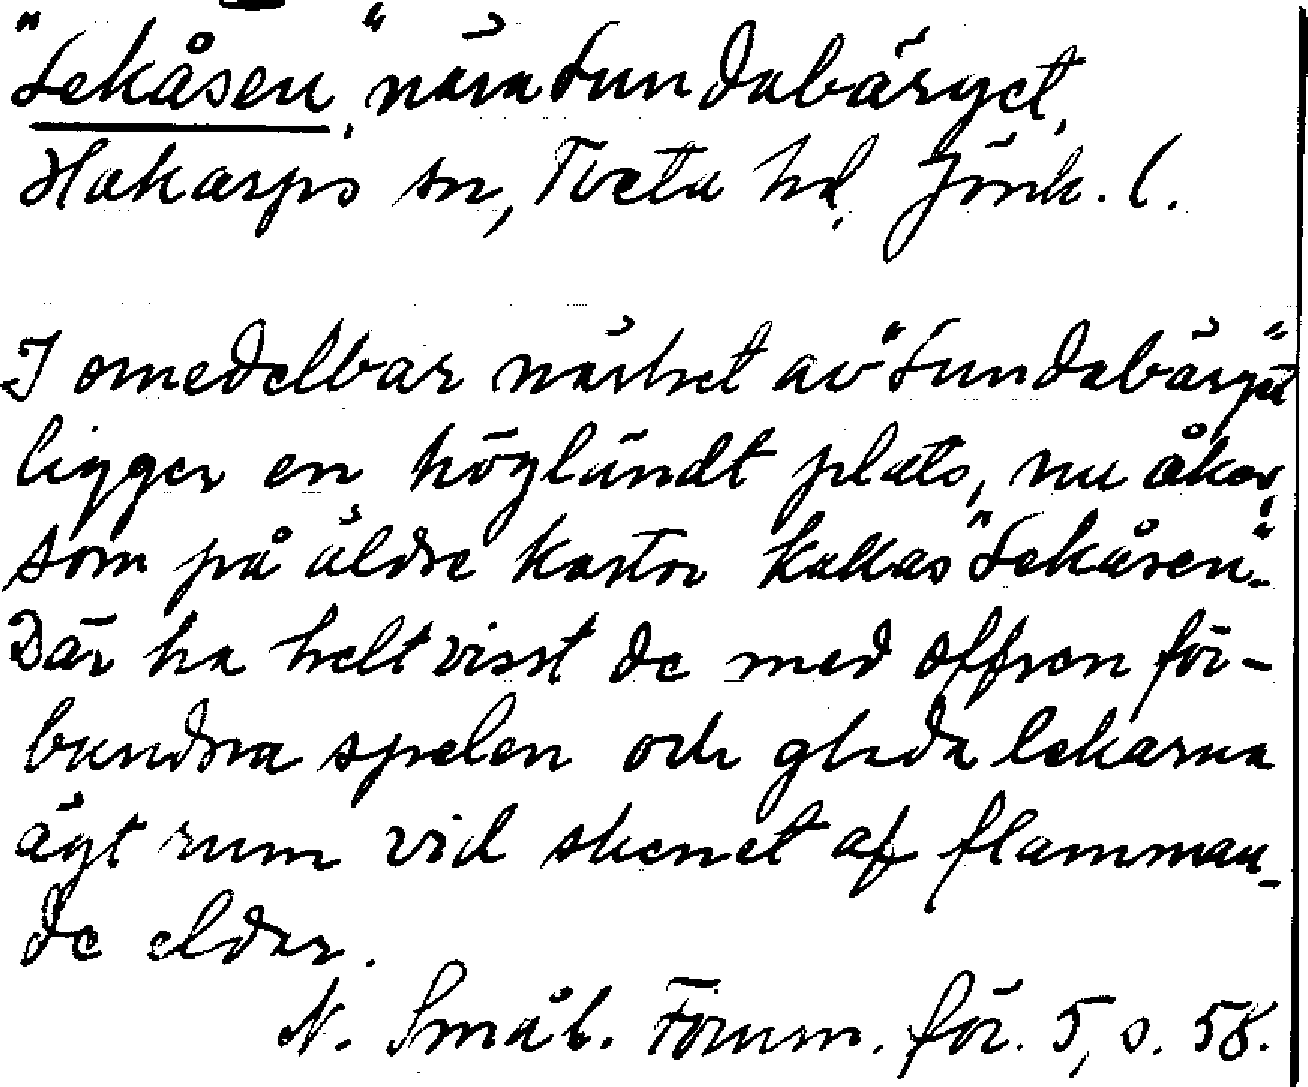 "Lekåsen," nära Lundabärget,
Hakarps sn, Tveta hd, Jönk. l.
I omedelbar närhet av "Lundabärget"
ligger en högländt plats, nu åker,
som på äldre kartor kallas "Lekåsen".
Där ha helt visst de med offren för-
bundna spelen och glada lekarna
ägt rum vid skenet af flamman-
de eldar.
N. Smål. Fornm. för. 5, s. 58.